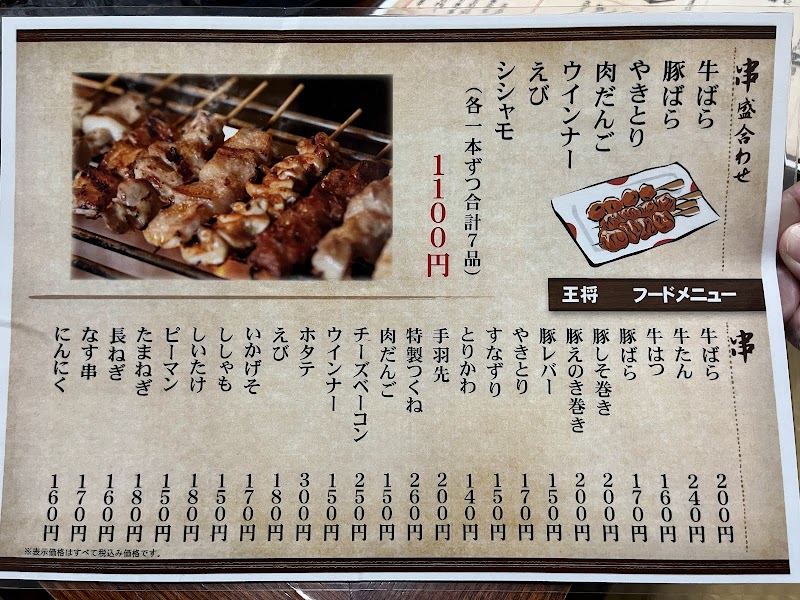 串盛合わせ
牛ばら
豚ばら
やきとり
肉だんご
ウインナー
えび
シシャモ
（各一本ずつ合計７品）
１１００円
王将　フードメニュー
串
牛ばら 200円
牛たん 240円
牛はつ 160円
豚ばら 170円
豚しそ巻き 200円
豚えのき巻き 200円
豚レバー 150円
やきとり 170円
すなずり 150円
とりかわ 140円
手羽先 200円
特製つくね 260円
肉だんご 150円
チーズベーコン 250円
ウインナー 150円
ホタテ 300円
えび 180円
いかげそ 170円
ししゃも 150円
しいたけ 180円
ピーマン 150円
たまねぎ 180円
長ねぎ 160円
なす串 170円
にんにく 160円
※表示価格はすべて税込み価格です。